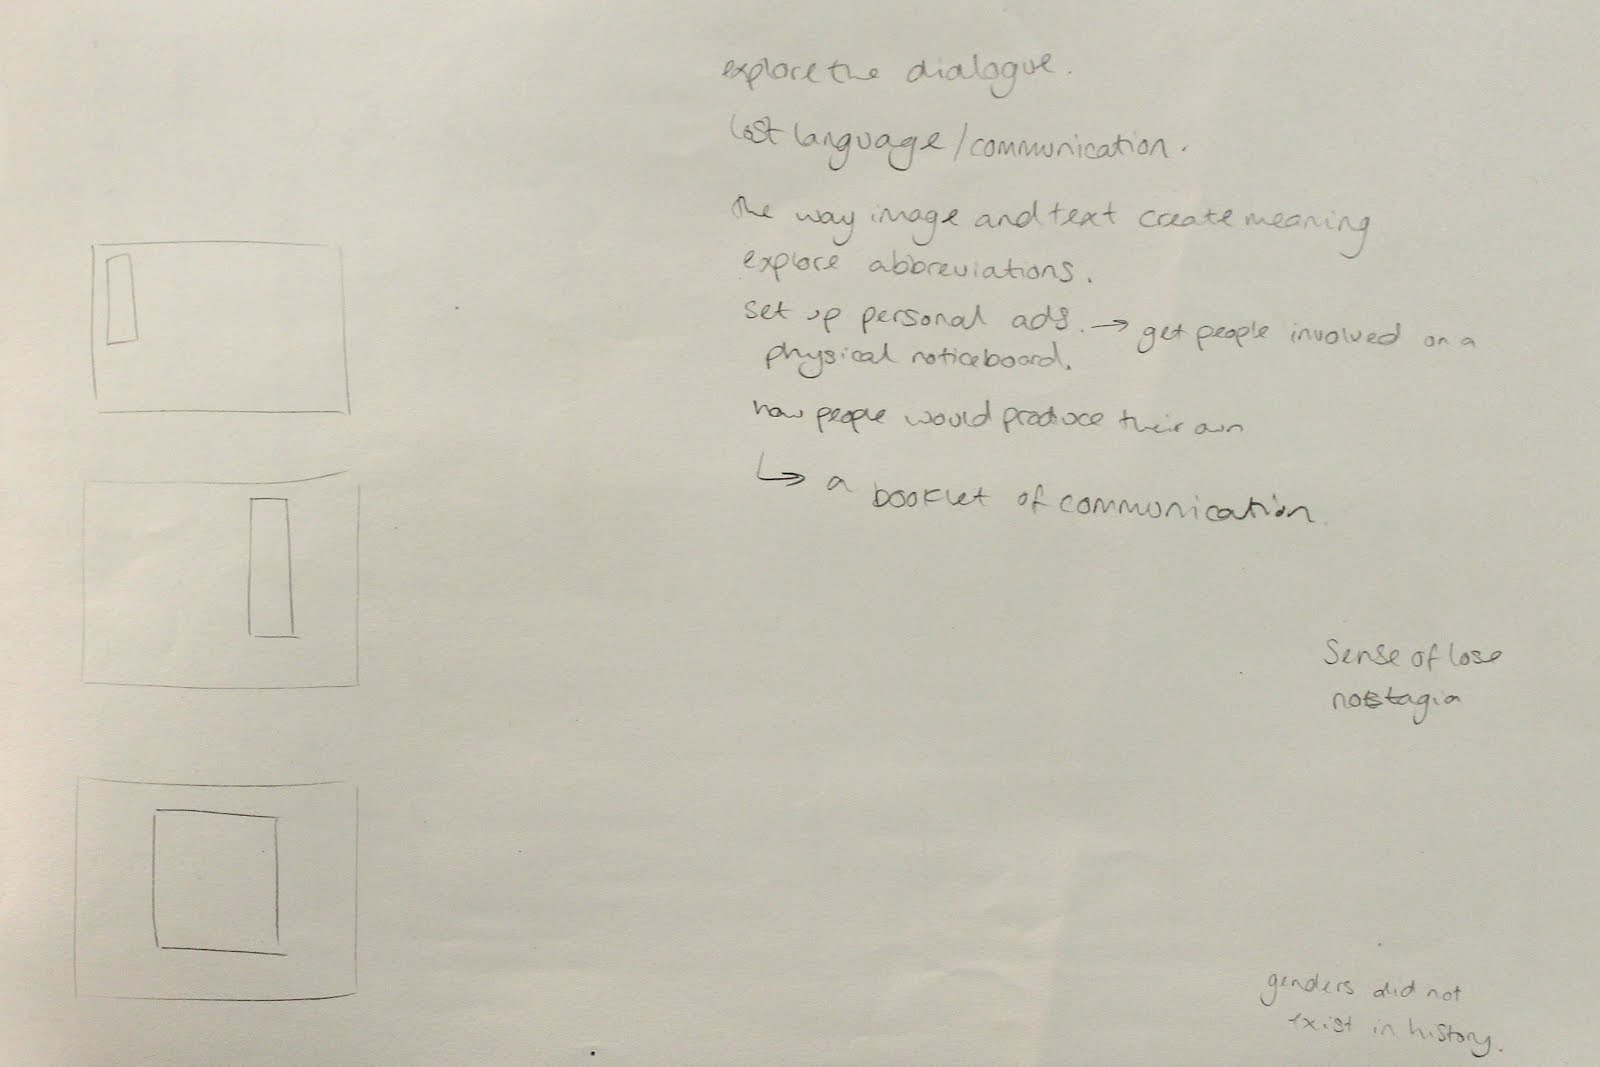 explore the dialogue.
lost language/communication.
the way image and text create meaning
explore abbreviations.
set up personal ads. → get people involved on a
physical noticeboard.
how people would produce their own
↳ a booklet of communication.
Sense of lose
nostagia
genders did not
exist in history.